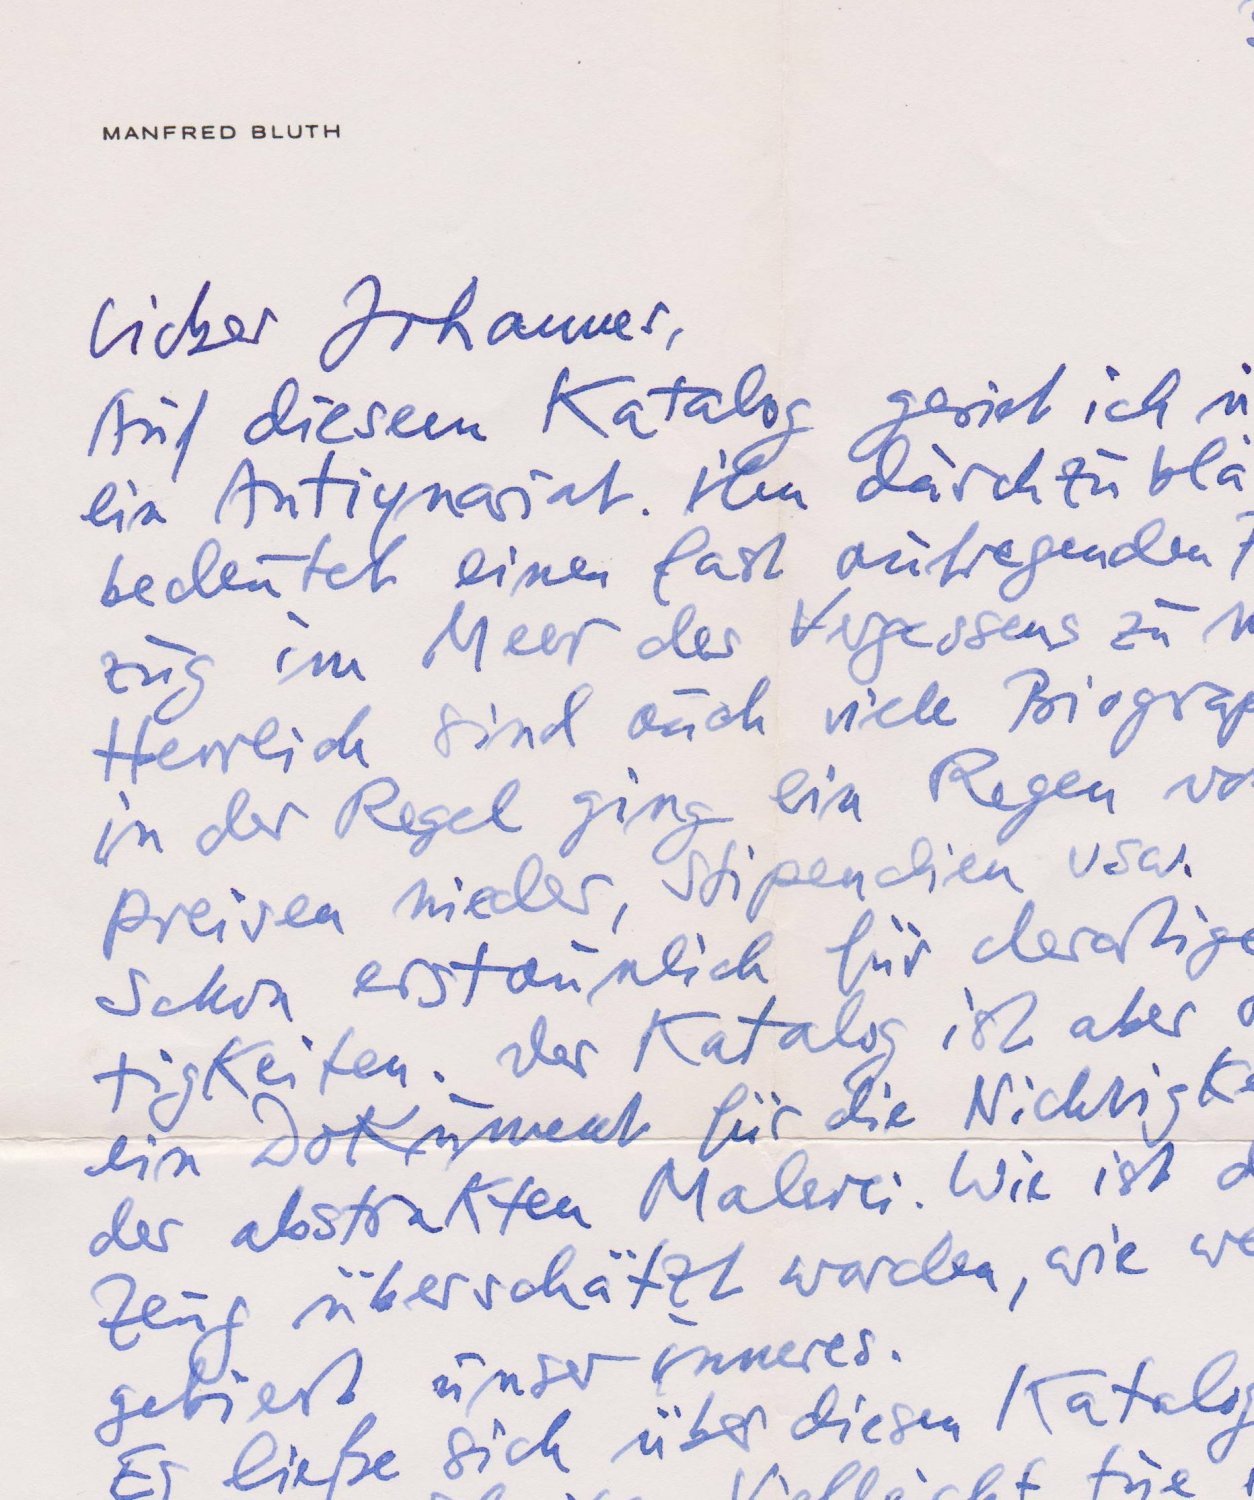 MANFRED BLUTH
Lieber Johannes,
Auf diesem Katalog geriet ich
ein Antiquariat. Ihn durchzublä
bedeutet einen fast aufregenden
zug im Meer des Vergessens zu
Herrlich sind auch viele Biograp
in der Regel ging ein Regen vo
preisen nieder, Stipendien usw.
Schon erstaunlich für derartige
tigkeiten. Der Katalog ist aber
ein Dokument für die Nichtigke
der abstrakten Malerei. Wie ist d
Zeug überschätzt worden, wie we
gebiert unser Inneres.
Es ließe sich über diesen Katalog
Vielleicht tue